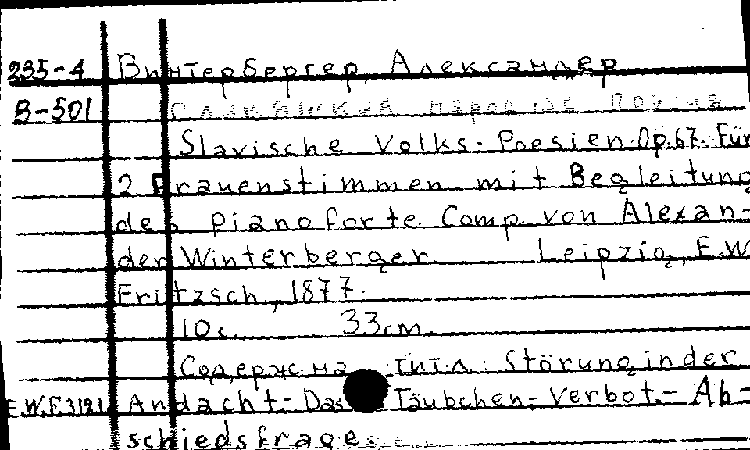 235-4 Винтербергер, Александер
В-501 Славянская народная поэзия
Slavische Volks-Poesien.Op.67. Für
2 Frauenstimmen mit Begleitung
des Pianoforte Comp. von Alexan-
der Winterberger Leipzig, E.W.
Fritzsch, 1877.
10с. 33cm.
Содерж. на тит.л.: Störung in der
E.W.F.319l Andacht.- Das Täubchen.- Verbot.- Ab-
schiedsfrage.